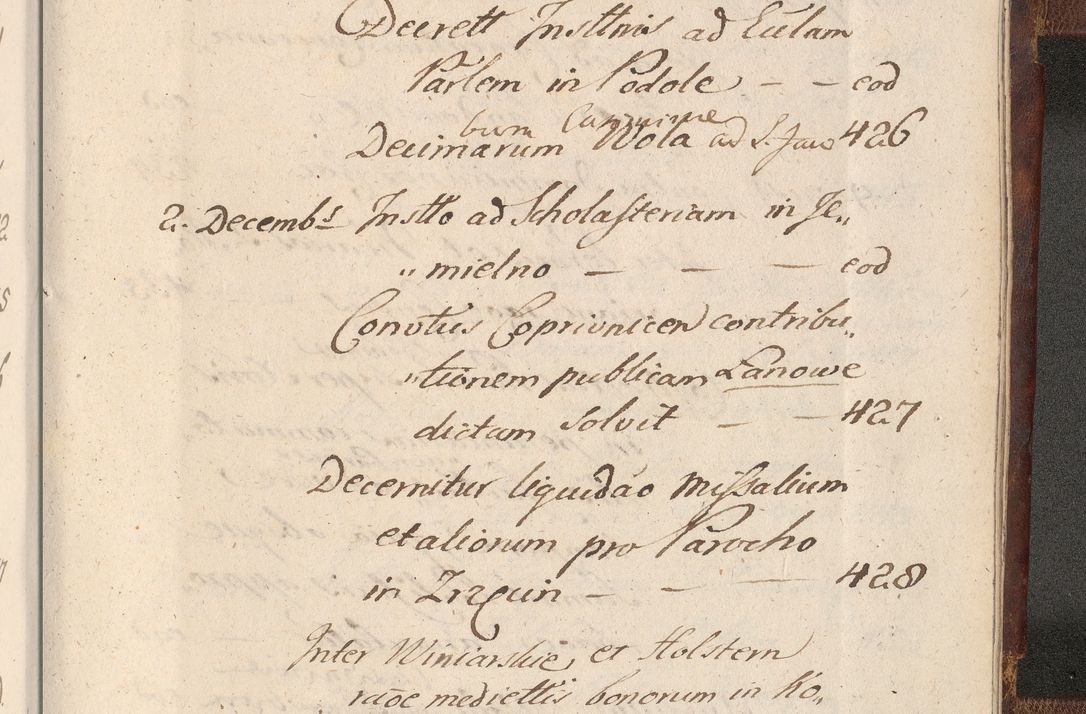 Decrett Insttnis ad Eccl̄am
Parlem in Podole – – eod
bum Cammine
Decimarum Wola ad S. Jaco 426
2. Decembs Instto ad Scholasteriam in Je„
„mielno – – – eod
Convtus Coprivnicen contribu„
„tionem publicam Lanowe
dictam solvit – – 427
Decernitur liquidao Missalium
et aliorum pro Parocho
in – – 428
Inter Winiarskie, et Holstern
raõe mediettis bonorum in Ko„